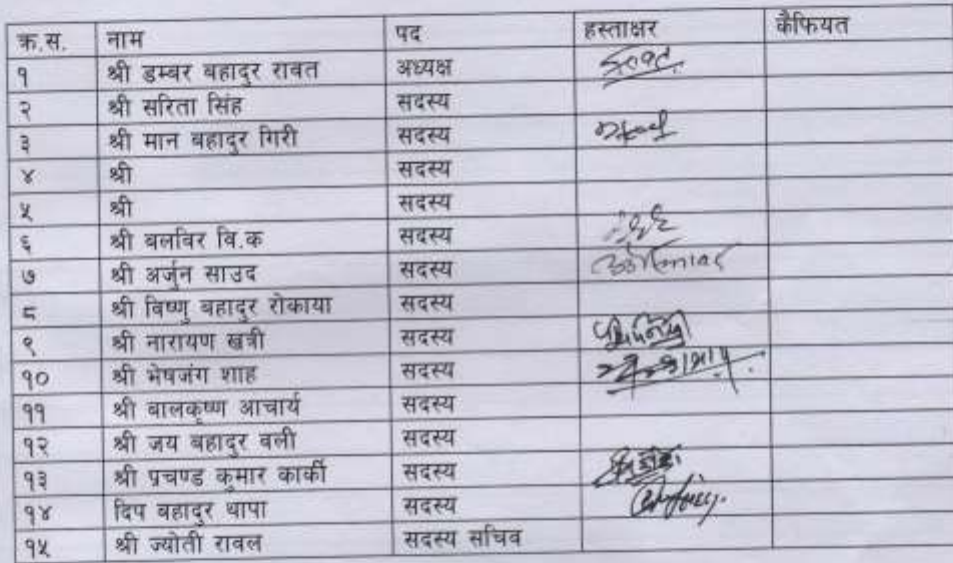 क्र.स. नाम पद हस्ताक्षर कैफियत
१ श्री डम्बर बहादुर रावत अध्यक्ष
२ श्री सरिता सिंह सदस्य
३ श्री मान बहादुर गिरी सदस्य
४ श्री सदस्य
५ श्री सदस्य
६ श्री बलविर वि.क सदस्य
७ श्री अर्जुन साउद सदस्य
८ श्री विष्णु बहादुर रोकाया सदस्य
९ श्री नारायण खत्री सदस्य
१० श्री भेषजंग शाह सदस्य
११ श्री बालकृष्ण आचार्य सदस्य
१२ श्री जय बहादुर वली सदस्य
१३ श्री प्रचण्ड कुमार कार्की सदस्य
१४ दिप बहादुर थापा सदस्य
१५ श्री ज्योती रावल सदस्य सचिव